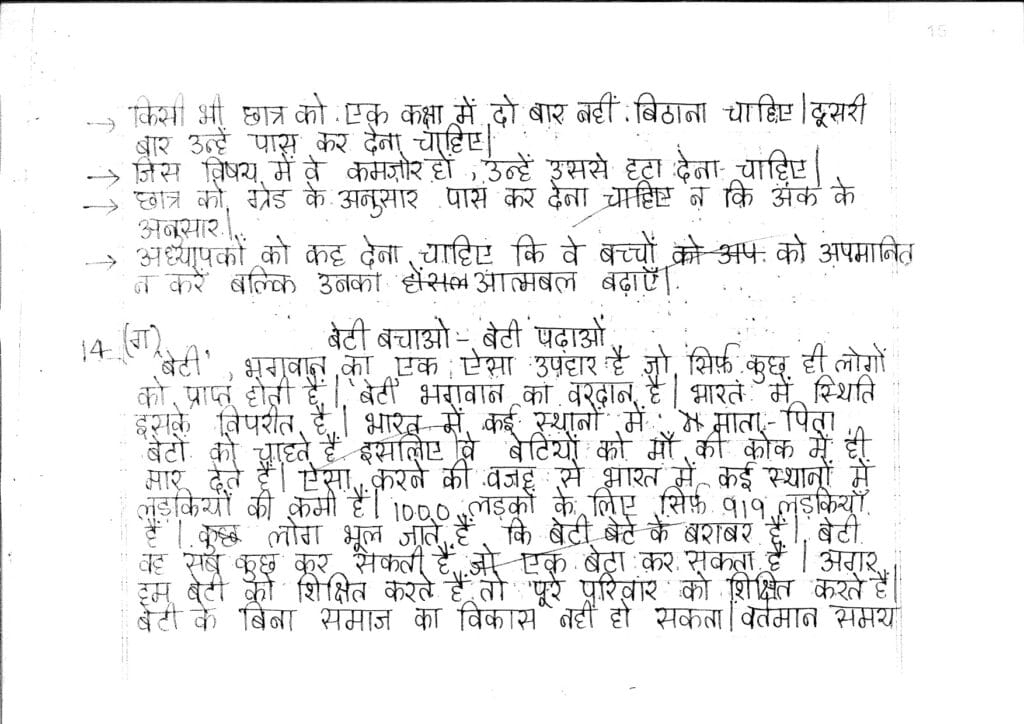 15
→ किसी भी छात्र को एक कक्षा में दो बार नहीं बिठाना चाहिए। दूसरी
बार उन्हें पास कर देना चाहिए।
→ जिस विषय में वे कमज़ोर हों, उन्हें उससे हटा देना चाहिए।
→ छात्र को ग्रेड के अनुसार पास कर देना चाहिए न कि अंक के
अनुसार।
→ अध्यापकों को कह देना चाहिए कि वे बच्चों को अप को अपमानित
न करें बल्कि उनका हौसल आत्मबल बढ़ाएँ।
14 (ग) बेटी बचाओ - बेटी पढ़ाओं
बेटी, भगवान का एक ऐसा उपहार है जो सिर्फ़ कुछ ही लोगों
को प्राप्त होती हैं। बेटी भगवान का वरदान है। भारत में स्थिति
इसके विपरीत है। भारत में कई स्थानों में माता-पिता
बेटों को चाहते हैं इसलिए वे बेटियों को माँ की कोक में ही
मार देते हैं। ऐसा करने की वजह से भारत में कई स्थानों में
लड़कियों की कमी हैं। 1000 लड़कों के लिए सिर्फ़ 919 लड़कियाँ
हैं। कुछ लोग भूल जाते हैं कि बेटी बेटे के बराबर हैं। बेटी
वह सब कुछ कर सकती हैं जो एक बेटा कर सकता है। अगर
हम बेटी को शिक्षित करते हैं तो पूरे परिवार को शिक्षित करते हैं।
बेटी के बिना समाज का विकास नहीं हो सकता। वर्तमान समय